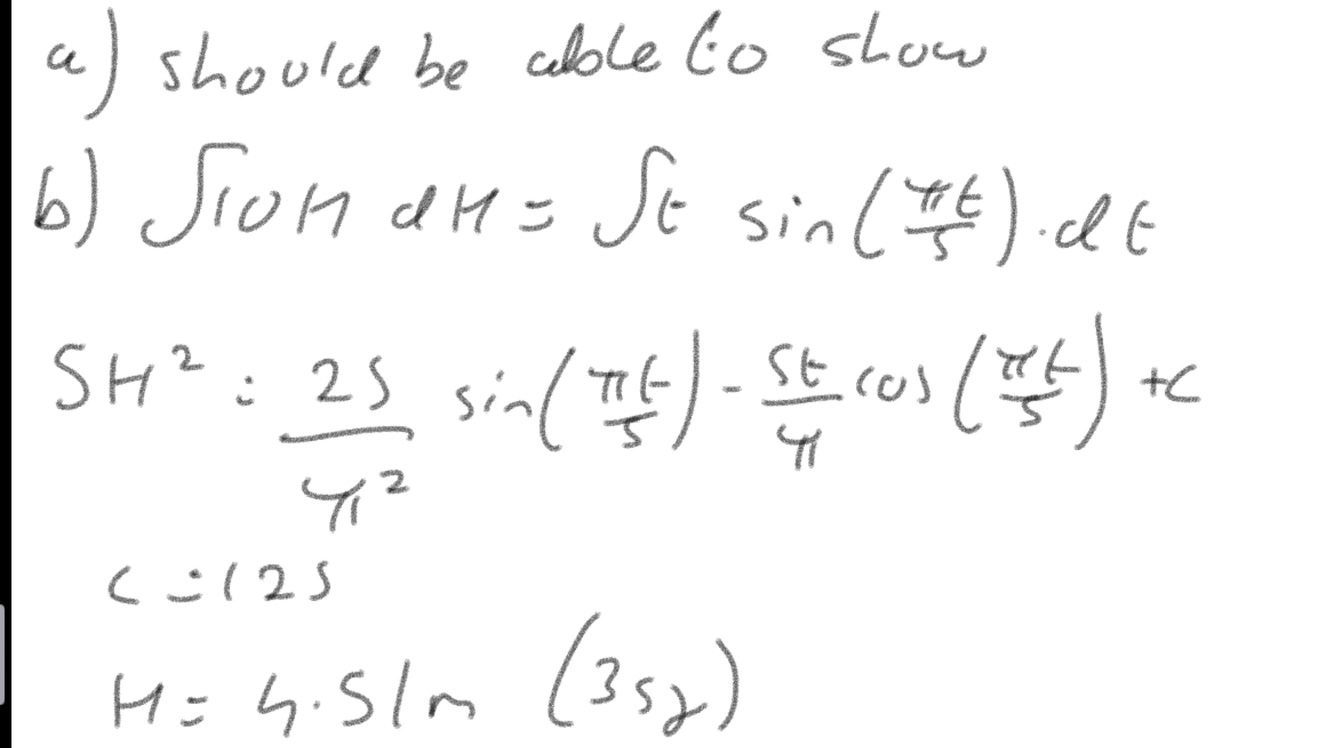 a) should be able to show
b) ∫10H dH = ∫t sin(πt/5).dt
5H² = 25/π² sin(πt/5) - 5t/π cos(πt/5) +c
c = 125
H = 4.51m (3sf)